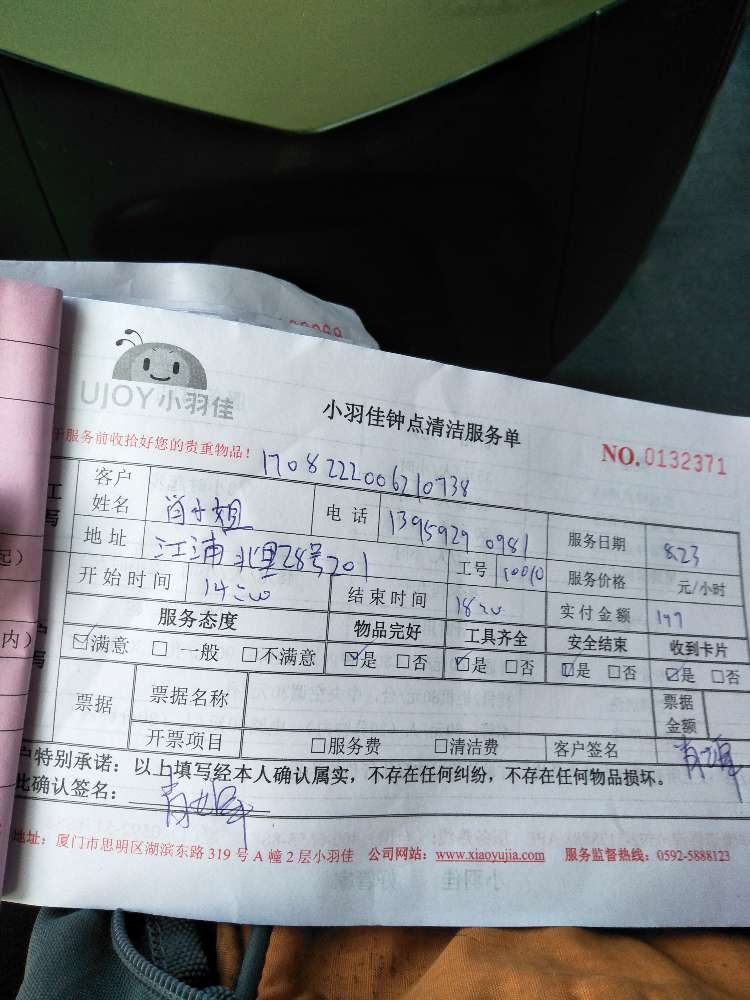 UJOY小羽佳
小羽佳钟点清洁服务单
NO.0132371
于服务前收拾好您的贵重物品！
1708222006210738
客户姓名 肖小姐 电话 13959290981 服务日期 8.23
地址 江浦北里28号201 工号 10010 服务价格 元/小时
开始时间 14:20 结束时间 18:20 实付金额
服务态度 物品完好 工具齐全 安全结束 收到卡片
☑满意 □一般 □不满意 ☑是 □否 ☑是 □否 ☑是 □否 ☑是 □否
票据 票据名称 票据金额
开票项目 □服务费 □清洁费 客户签名
户特别承诺：以上填写经本人确认属实，不存在任何纠纷，不存在任何物品损坏。
此确认签名：
地址：厦门市思明区湖滨东路319号A幢2层小羽佳 公司网站：www.xiaoyujia.com 服务监督热线：0592-5888123